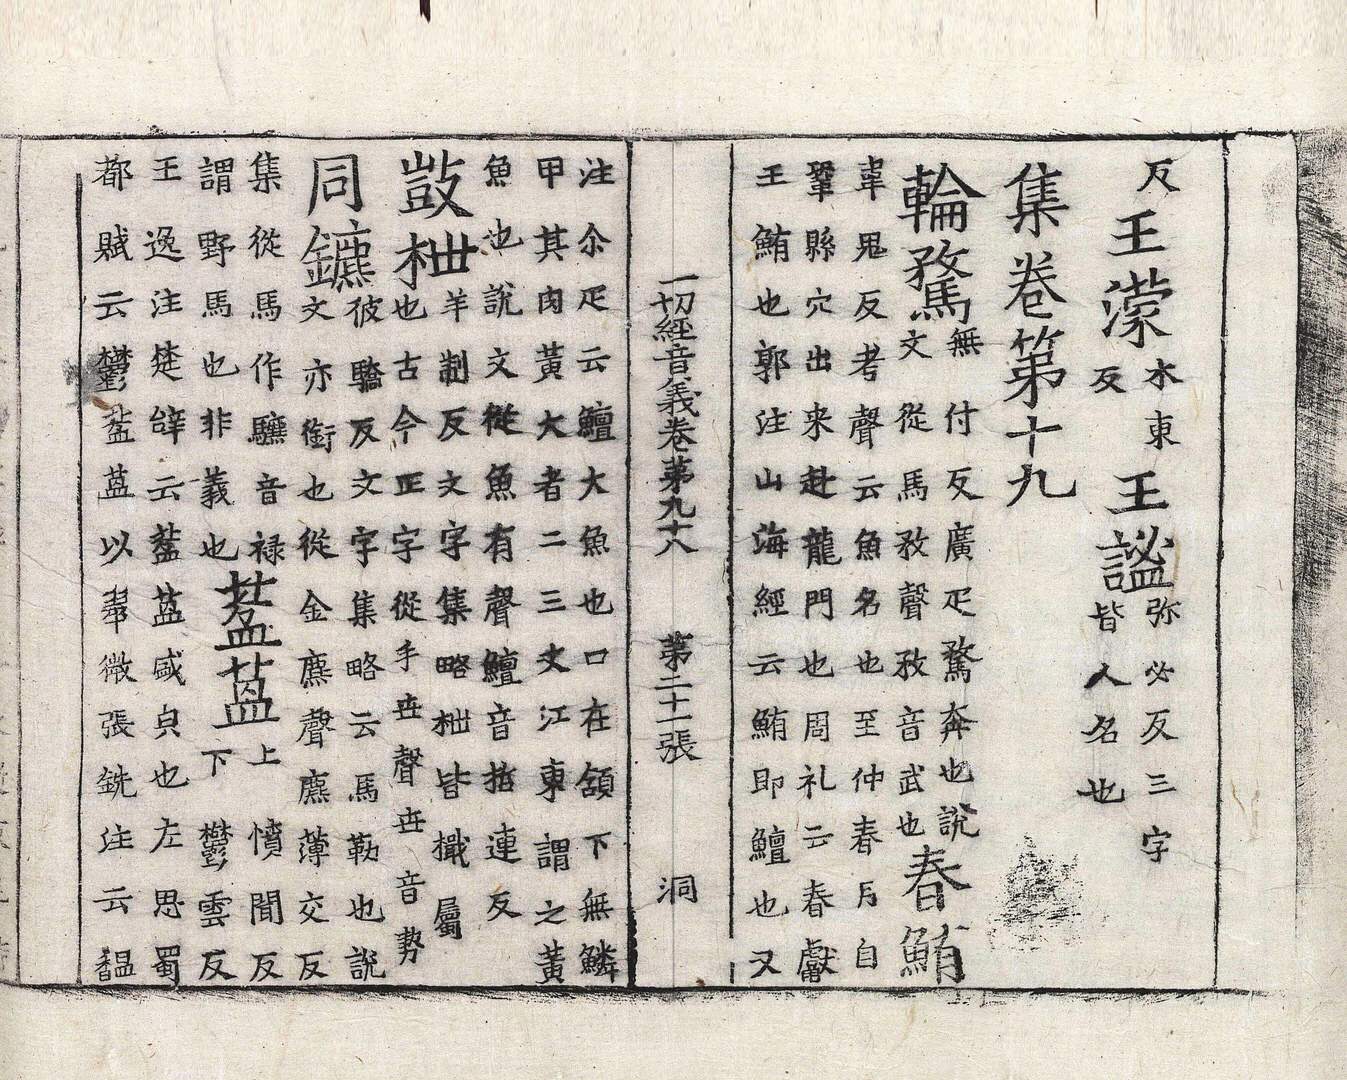 反王濛木東反王謐弥必反三字皆人名也
集卷第十九
輪騖無付反廣疋騖奔也說文從馬孜聲孜音武也春鮪
韋鬼反考聲云魚名也至仲春月自
鞏縣穴出来赴龍門也周礼云春獻
王鮪也郭注山海經云鮪即鱣也又
一切經音義卷第九十八 第二十一張 洞
注尒疋云鱣大魚也口在頷下無鱗
甲其肉黃大者二三丈江東謂之黃
魚也說文從魚有聲鱣音連反
鼓枻羊制反文字集略枻皆檝屬也古今正字從手世聲世音勢
同鑣彼驕反文字集略云馬勒也說文亦銜也從金麃聲麃薄交反
集從馬作音禄謂野馬也非義也葐蒀上憤聞反下鬱雲反
王逸注楚辝云葐蒀盛皃也左思蜀
都賦云鬱葐蒀以翠微張銑注云馧